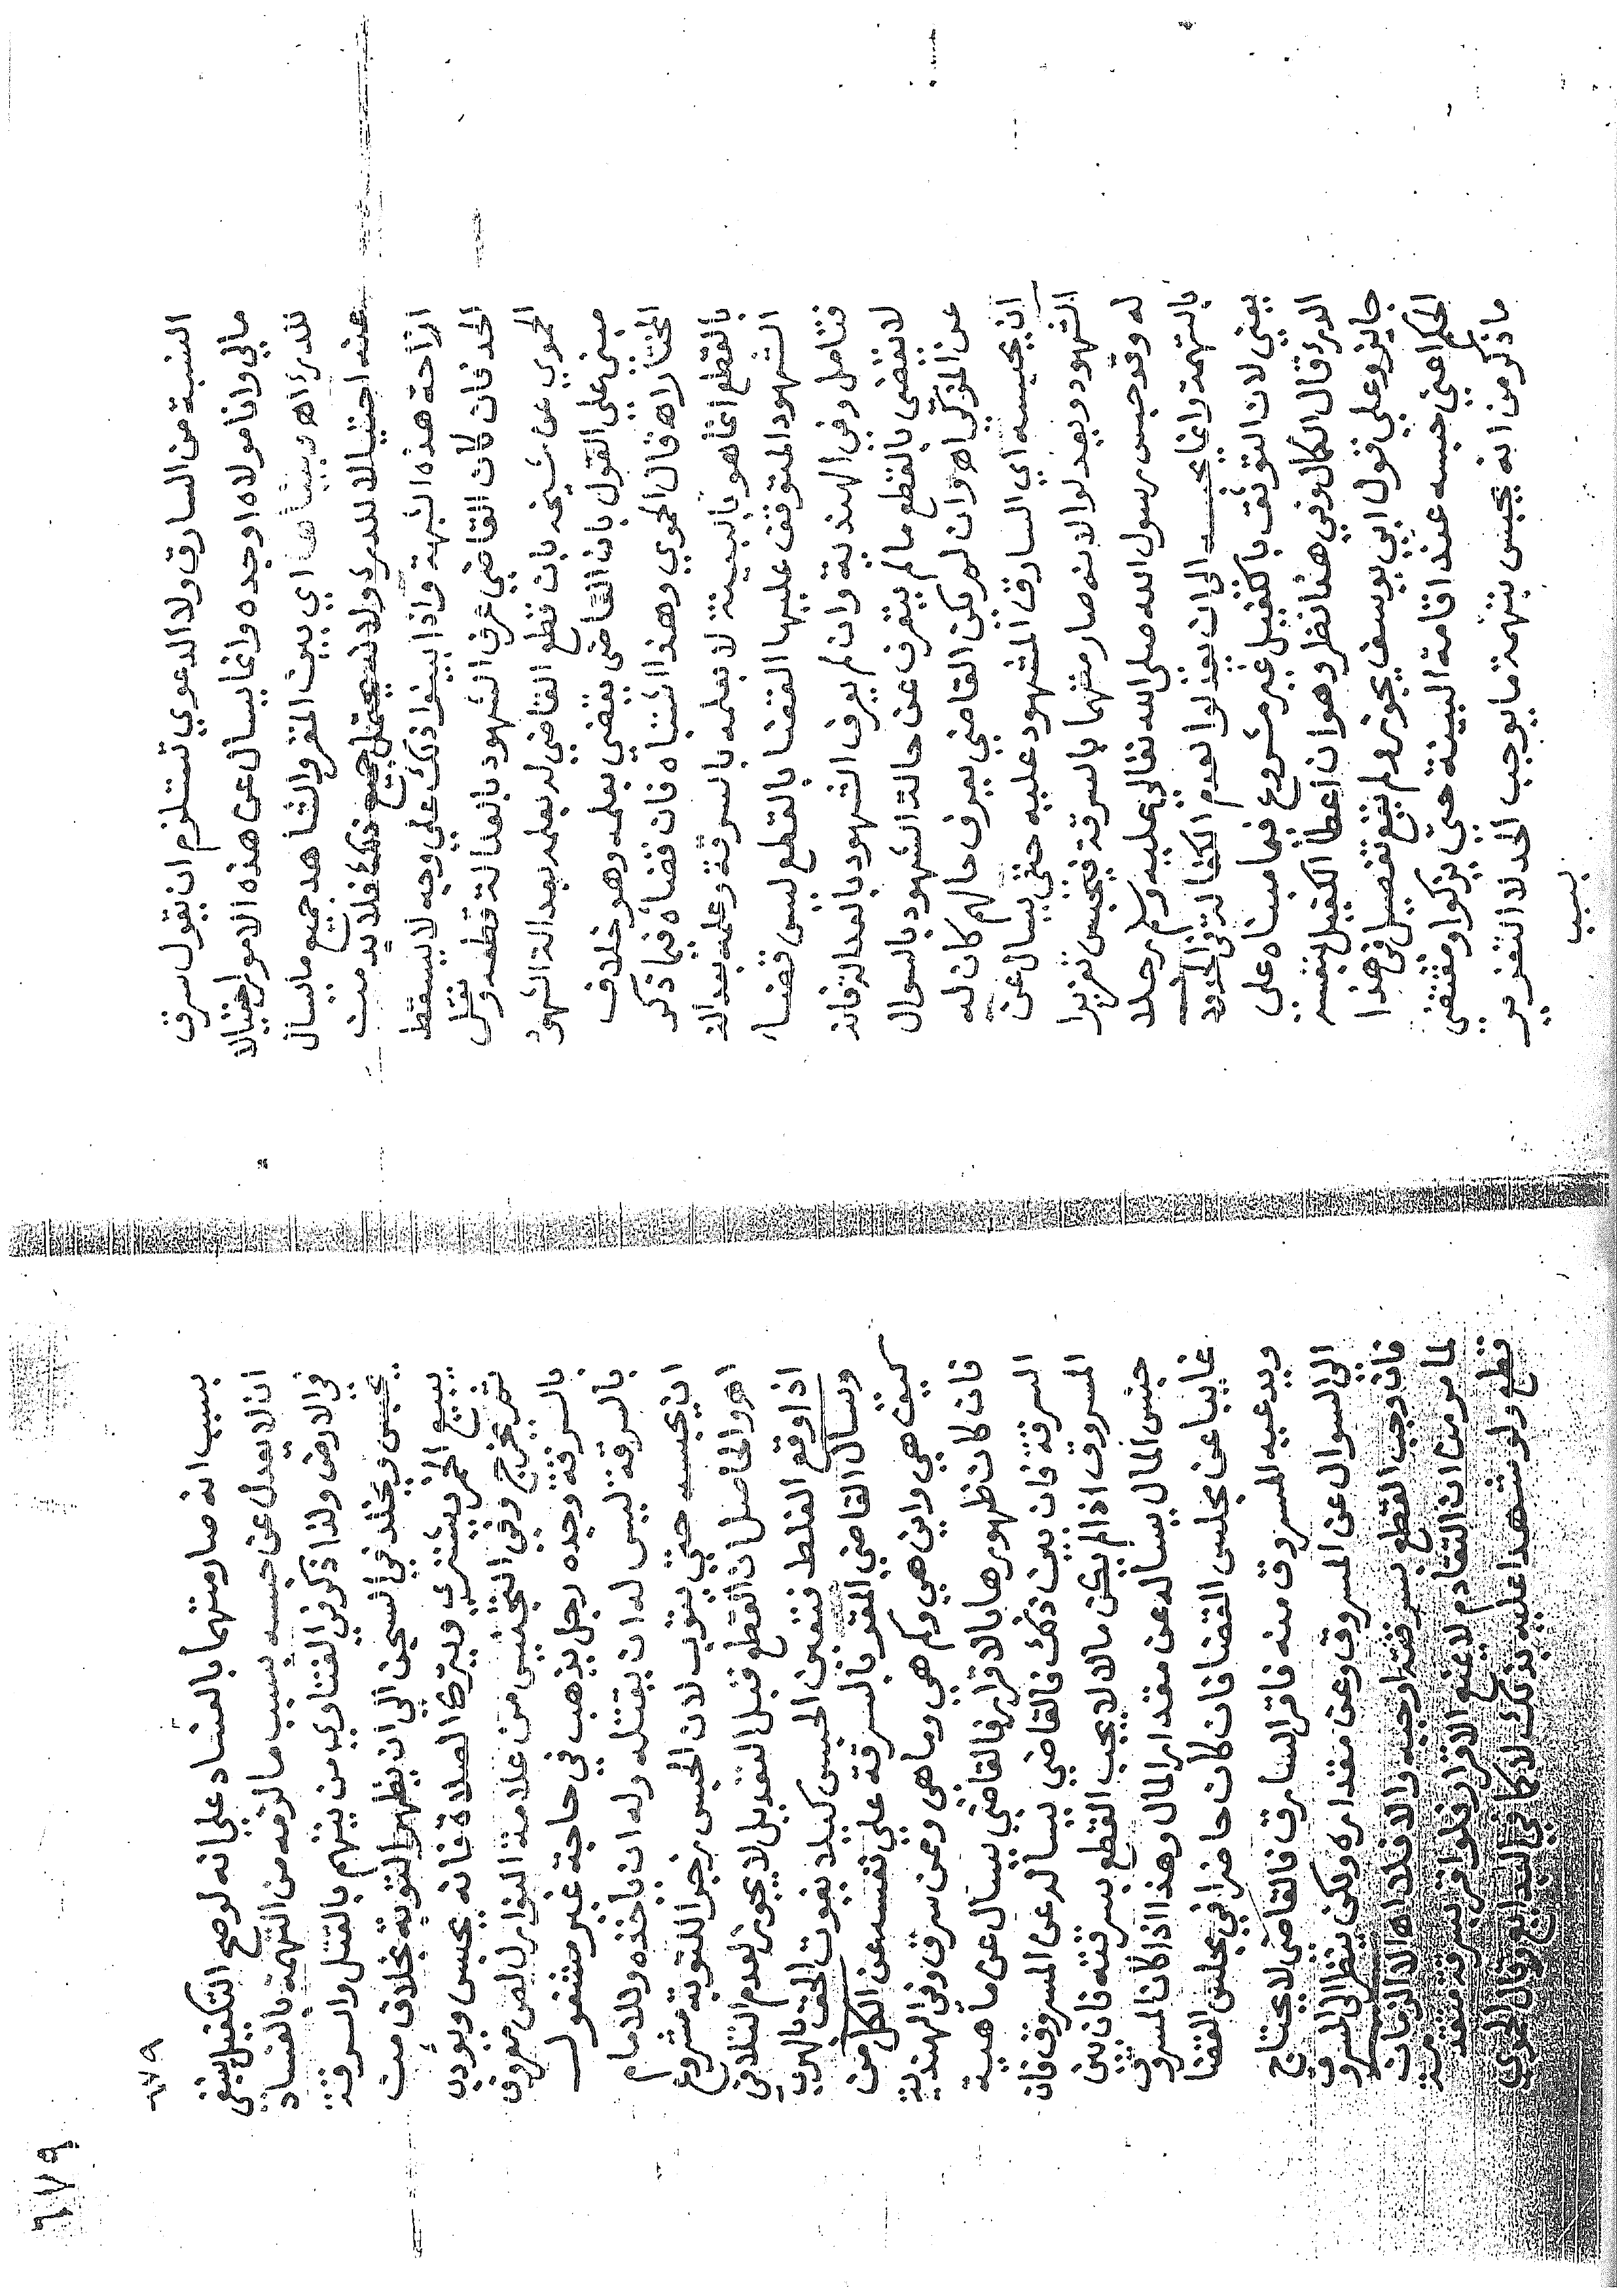 النسبة من السارق ولا الدعوي تستلزم ان يقول سرق
مالي وانا مولاه اوجده وانما يسال عن هذه الامور احتيالا
للدرء اهـ وبيناها اي بين المقر والشاهد جميع ما يسال
عنه احتيالا للدرء ولا فلا بد من
ازاحة هذه الشبهة واذا بينوا ذلك علي وجه لا يسقط
الحد فان كان القاضي عرف الشهود بالعدالة قطعه ونقل
الحموي عن شيخه بان قطع القاضي له بعلمه بعدالة الشهود
مبني علي القول بان القاضي يقضي بعلمه وهو خلاف
المختار اهـ قال الحموي وهذا اشتباه فان قضاه فيما ذكر
بالقطع انما هو بالبينة لا بعلمه بالسرقة وعلمه بعدالة
الشهود المتوقف عليها القضا بالقطع ليس قضا
فتامل وفي الهندية وان لم يعرف الشهود بالعدالة فانه
لا يقضي بالقطع ما لم يتعرف عن حالة الشهود بالسوال
عن المزكي اهـ وان لم يكن القاضي يعرف حالهم كان له
ان يحبسه اي السارق المشهود عليه حتي يسال عن
الشهود ويعدلوا لانه صار متهما بالسرقة فيحبس تعزيرا
له وقد حبس رسول الله صلي الله تعالي عليه وسلم رجلا
بالتهمة وانما يحبسه الي ان يعدلوا لعدم الكفالة في الحدود
يعني لان التوثق بالكفيل غير مشروع فيما مبناه علي
الدرء قال الكمال وفي هذا نظر وهو ان اعطا الكفيل بنفسه
جايز وعلي قول ابي يوسف يجوز ولم يقع تفصيل في هذا
الحكم اعني حبسه عند اقامة البينة حتي يزكوا ومقتضي
ما ذكر من انه يحبس بتهمة ما يوجب الحد لا التعزير
بسبب
٦٧٩
٦٧٩
بسبب انه صار متهما بالفساد علي انه لو صح التكفيل ينبغي
ان لا يعدل عن حبسه بسبب ما لزمه من التهمة بالفساد
في الارض ولذا ذكر في الفتاوي من يتهم بالقتل والسرقة
يحبس ويخلد في السجن الي ان يظهر التوبة بخلاف من
يبيع الخمر ويشتري ويترك الصلاة فانه يحبس ويودب
ثم يخرج وفي التجنيس من علامة البوار لص معروف
بالسرقة وجده رجل يذهب في حاجة غير مشغول
بالسرقة ليس له ان يقتله وله ان ياخذه وللامام
ان يحبسه حتي يتوب لان الحبس زجرا للتوبة مشروع
اهـ والحاصل ان القطع قبل التعديل لا يجوز لعدم التلافي
اذا وقع الغلط فتعين الحبس كيلا يفوت الحق بالهرب
وسال القاضي المقر بالسرقة علي نفسه عن الكل من
كيف هي واين هي وكم هي وما هي وممن سرق وفي الهندية
فان كان ظهورها بالاقرار فالقاضي يسال عن ماهية
السرقة فان بين ذلك فالقاضي يساله عن المسروق فان
المسروق اذا لم يكن مالا لا يجب القطع بسرقته فان بين
جنس المال يساله عن مقدار المال وهذا اذا كان المسروق
غايبا عن مجلس القضا فان كان حاضرا في مجلس القضا
ويدعيه المسروق منه فاقر السارق فالقاضي لا يحتاج
الي السوال عن المسروق وعن مقداره ولكن ينظر الي المسروق
فان وجب القطع بسرقته اوجبه والا فلا اهـ الا الزمان
لما مر من ان التقادم لا يمنع الاقرار فلو اقر بسرقة متقدمة
قطع ولو شهدا عليه بذلك لا كما في البدايع وقال الحموي